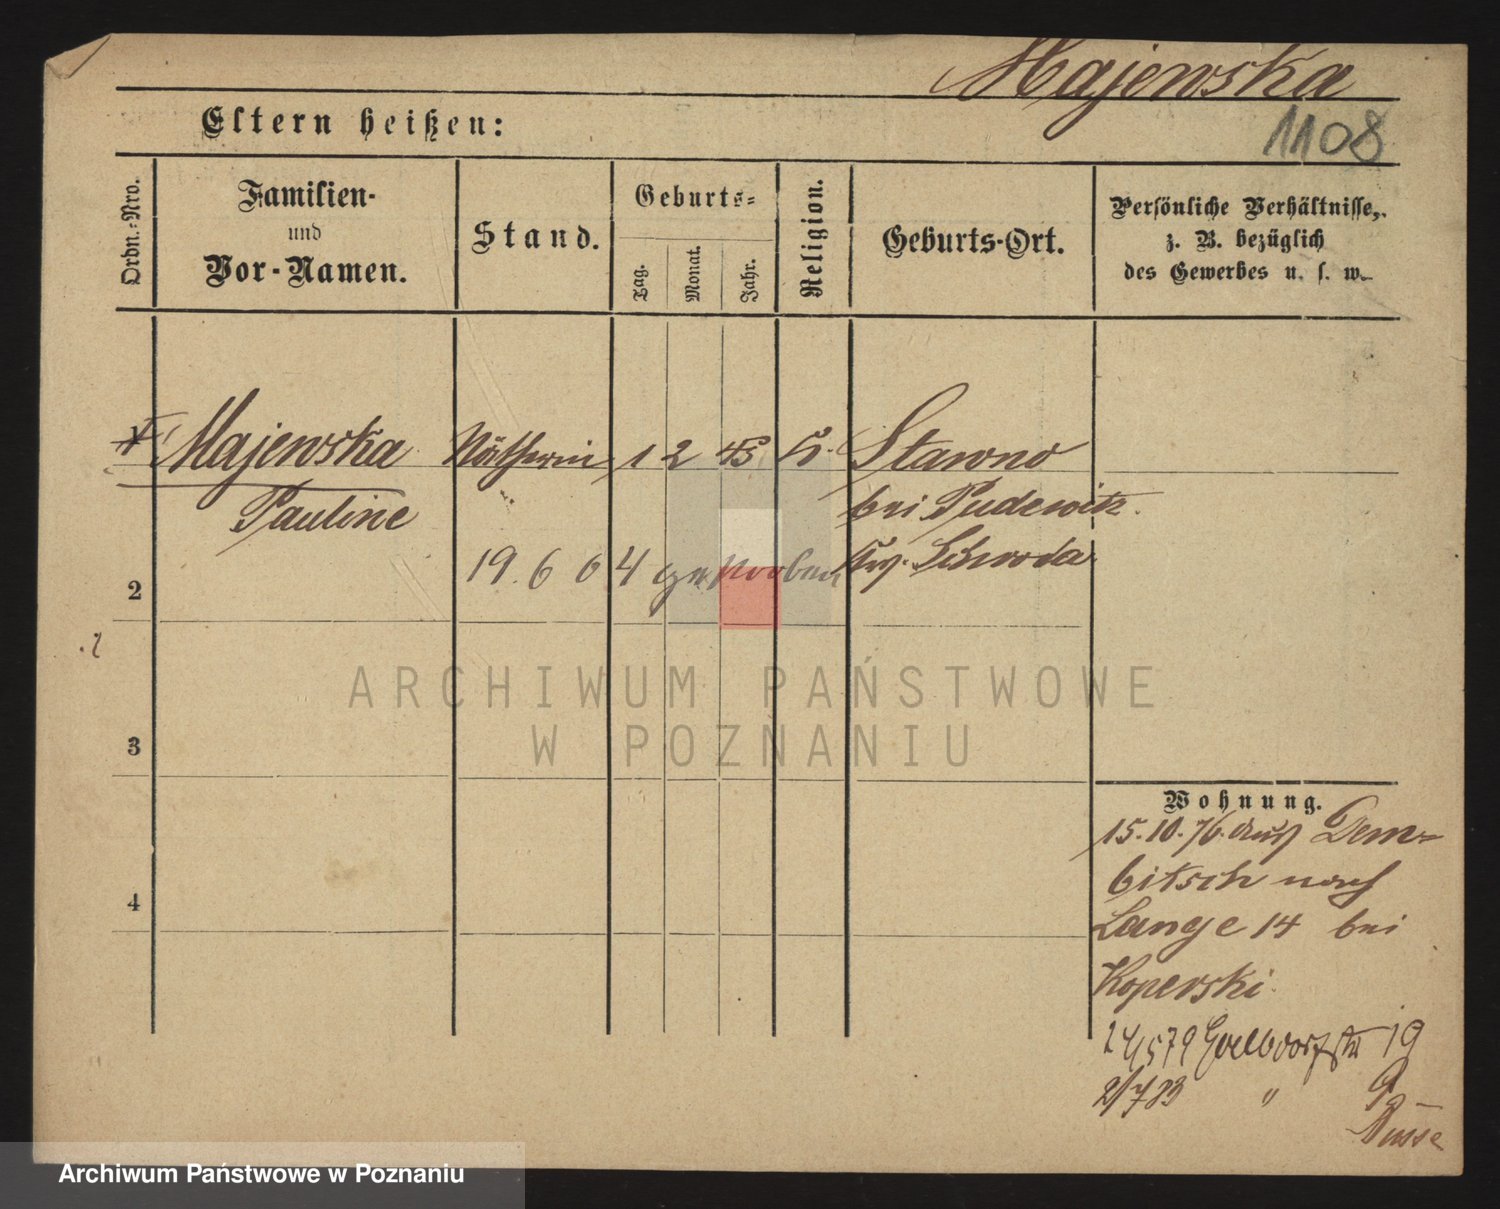 Majewska
1108
Eltern heißen:
Ordn.-Nro.
Familien-
und
Vor-Namen.
Stand.
Geburts-
Tag.
Monat.
Jahr.
Religion.
Geburts-Ort.
Persönliche Verhältnisse,
z. B. bezüglich
des Gewerbes u. s. w.
1 Majewska Nätherin 1 2 45 k. Stawno
Pauline
bei Pudewitz.
19. 6 04 gestorben
Krs. Schroda
2
3
4
ARCHIWUM PAŃSTWOWE
W POZNANIU
Wohnung.
15.10.76. aus Dem-
bitsch nach
Lange 14 bei
Koperski.
19
2/7 83 " 9
Archiwum Państwowe w Poznaniu